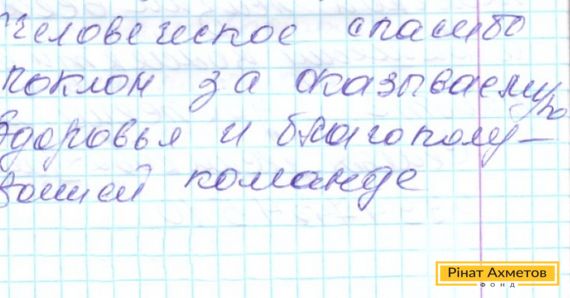 человеческое спасибо
поклон за оказываемую
здоровья и благополу-
вашей команде
Рінат Ахметов
ФОНД